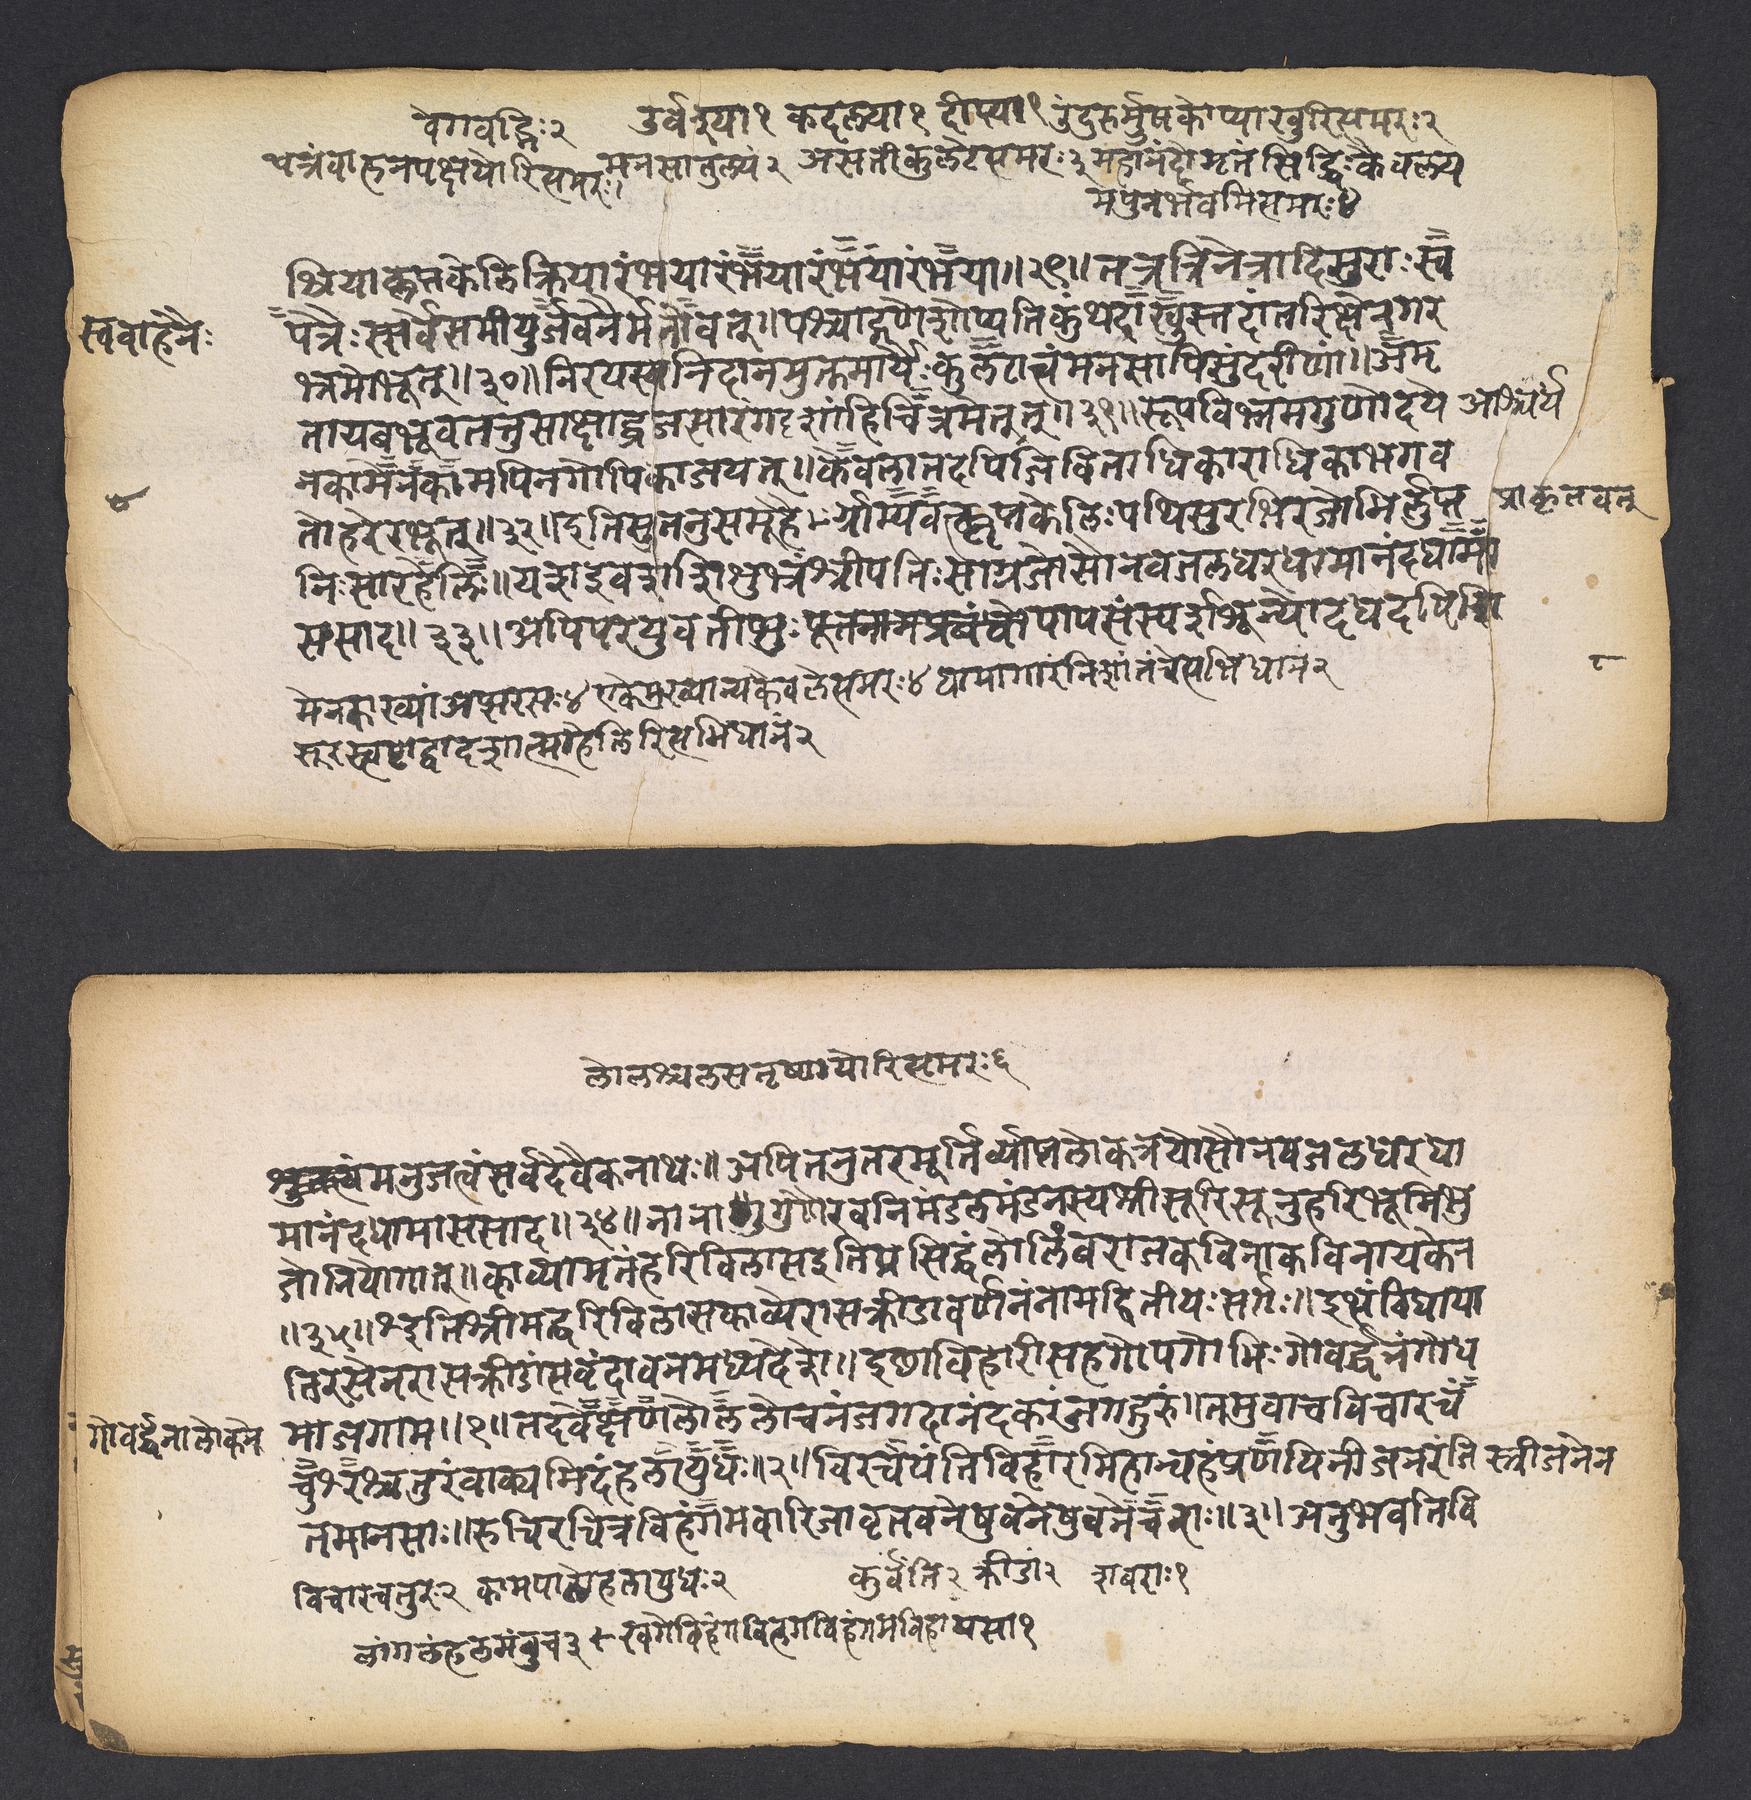 वेगवद्भिः२ उर्वश्या१ कदल्या१ दीप्त्या१ उंदुरुर्मुषकोप्याखुरित्यमरः२
पत्रंवाहनपक्षयोरित्यमरः। मनसातुल्यं२ असतीकुलटेत्यमरः३ महानंदोमृतंसिद्धिःकैवल्य
मपुनर्भवमित्यमरः४
श्रियाक्लृप्तकेलिक्रियारंभयारंभयारंभयारंभया॥२९॥तत्रत्रिनेत्रादिसुराःस्व
स्ववाहनैः
पत्रैःसर्वेसमीयुर्जवनैर्मनोवत्॥पश्चाद्गणेशोप्यतिकुंथदाखुस्तदांतरिक्षेनगर
भ्रमोभूत्॥३०॥निरयस्यनिदानमुक्तमार्यैःकुलटात्वंमनसापिसुंदरीणां॥अमृ
तायबभूवतत्तुसाक्षाद्व्रजसारंगदृशांहिचित्रमेतत्॥३१॥रूपविभ्रमगुणोदये
आश्चर्यं
नकामेनकामपिनगोपिकाजयत्॥केवलातदपिजिविताधिकाराधिकाभगव
तोहरेरभूत्॥३२॥इतिसुतनुसमूहैर्याम्यवत्क्लृप्तकेलिःपथिसुरभिरजोभिर्लुप्त
प्राकृतवत्
निःसारहेलिः॥यशइवशशिशुभ्रंश्रीपतिःसाग्रजोसौनवजलधरधामानंदधामा
ससाद॥३३॥अपिपरयुवतीषु
८
मेनकाख्यांअप्सरसः४ एकेमुख्यान्यकेवलेत्यमरः४ धामागारंनिशांतं२
सूरस्त्वष्टाद्वादशात्माहेलिरित्यभिधानं२
लोलश्चलसतृष्णयोरित्यमरः६
मनुजत्वंसर्वदेवैकनाथः॥अपितनुतरमूर्तिर्व्याप्तलोकत्रयोसौनवजलधरधा
मानंदधामाससाद॥३४॥नानागुणैरवनिमंडलमंडनस्यश्रीसूरिसूनुहरिभूमिभु
जोनियोगात्॥काव्यामृतंहरिविलासइतिप्रसिद्धंलोलिंबराजकविनाकविनायकेन
॥३५॥इतिश्रीमद्धरिविलासकाव्येरासक्रीडावर्णनंनामद्वितीयःसर्गः॥इत्थंविधाया
तिरसेनरासक्रीडांसवृंदावनमध्यदेशे॥इछाविहारीसहगोपगोभिःगोवर्द्धनंगोप
गोवर्द्धनालोकने
माजगाम॥१॥तदवेक्षणलोललोचनंजगदानंदकरंजगद्गुरुं॥तमुवाचविचारचं
चुरश्चतुरंवाक्यमिदंहलायुधः॥२॥विरचयंतिविहारमितान्वहंप्रणयिनीजनरंजि
स्त्रीजनेन
तमानसाः॥रुचिरचित्रविहंगमवारिजावृतवनेषुवनेषुवनेचराः॥३॥अनुभवतिवि
विचारचतुरः२ कामपालोहलायुधः२ कुर्वंति२ क्रीडां२ शबराः१
लांगलंहलमंबुच३ खगेविहंगविहगविहंगमविहायसा१